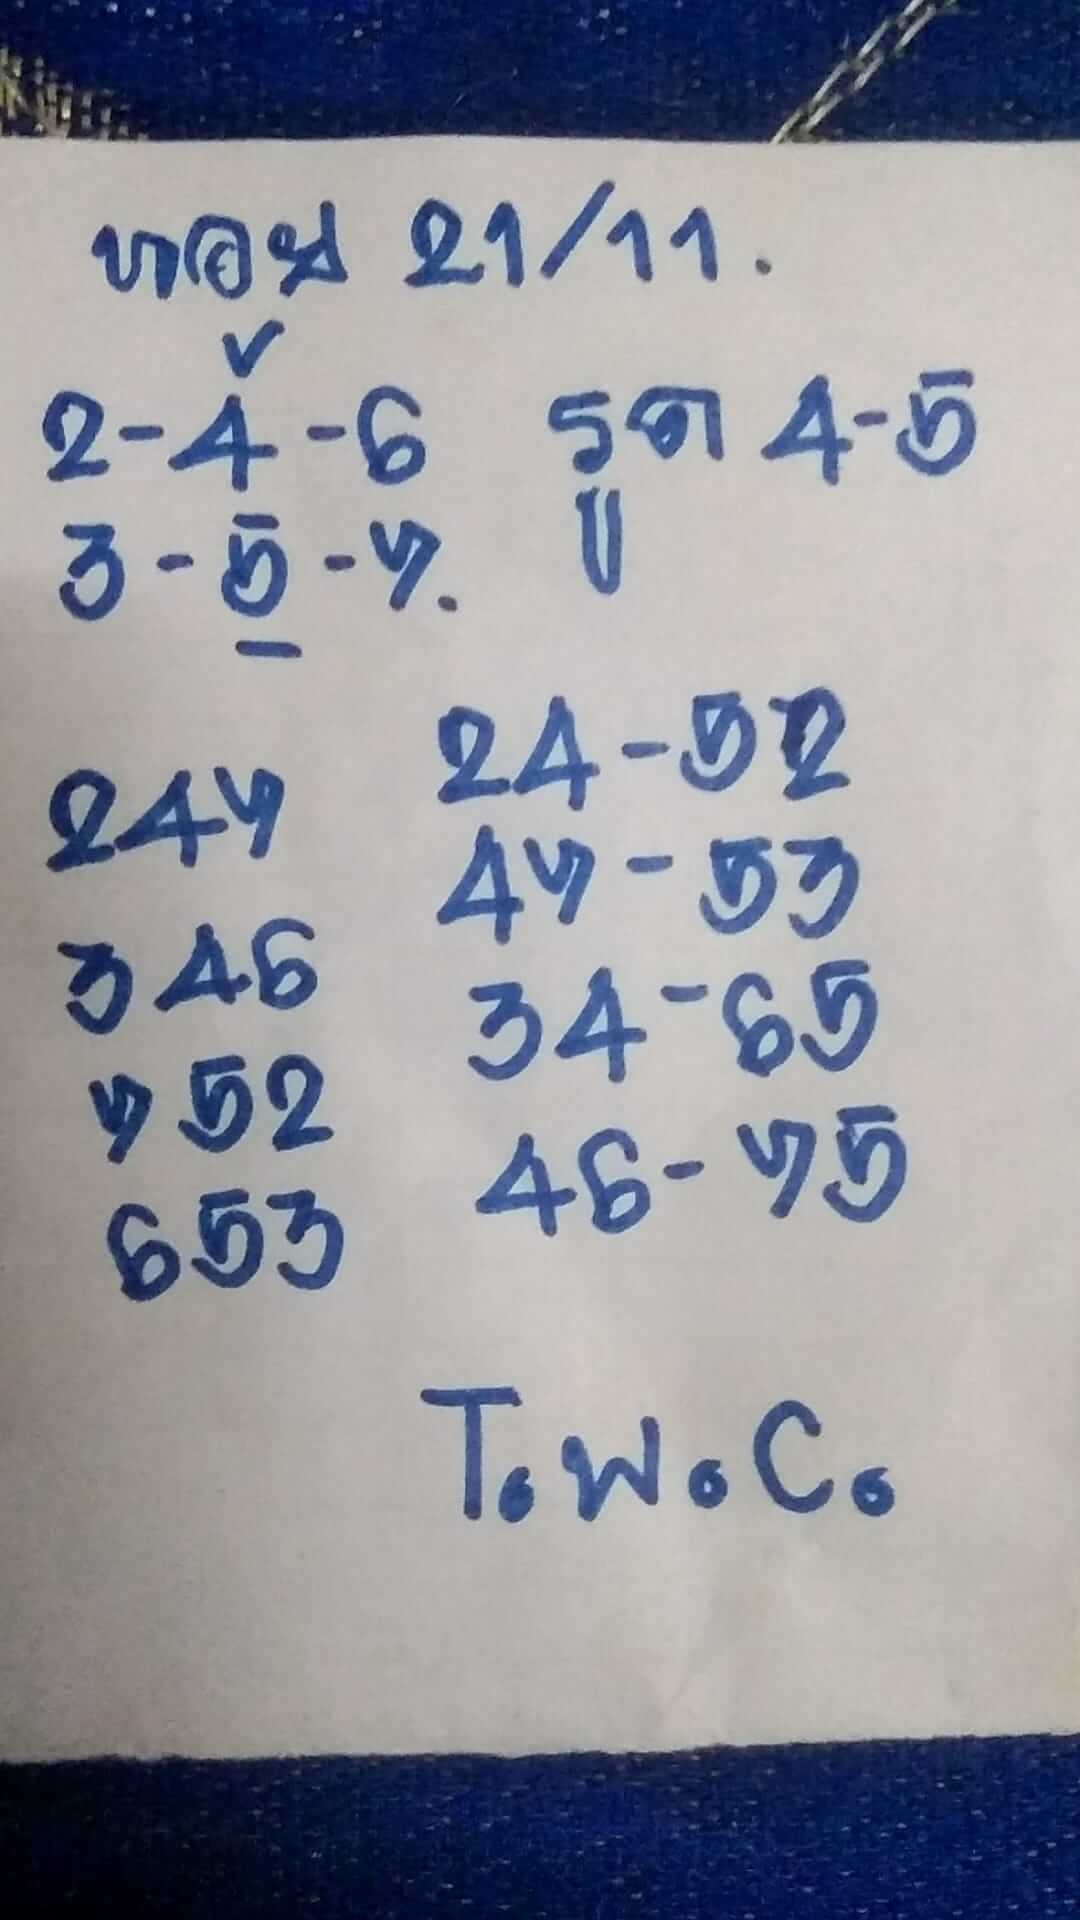 ฮานอย 21/11.
2-4-6 รูด 4-5
3-5-7.
247 24-52
346 47-53
752 34-65
653 46-75
T.W.C.